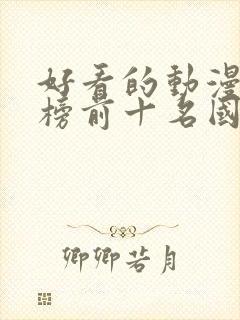 好看的動漫
榜前十名國
卿卿若月